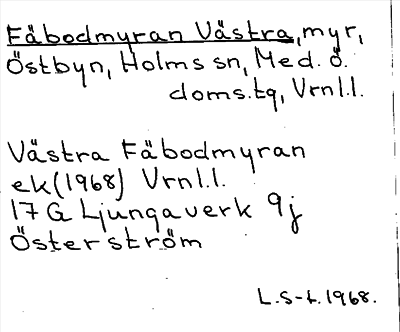 Fäbodmyran Västra, myr,
Östbyn, Holms sn, Med. ö.
doms.tg, Vrnl.l.
Västra Fäbodmyran
ek(1968) Vrnl.l.
17 G Ljungaverk 9j
Österström
L.S-t. 1968.